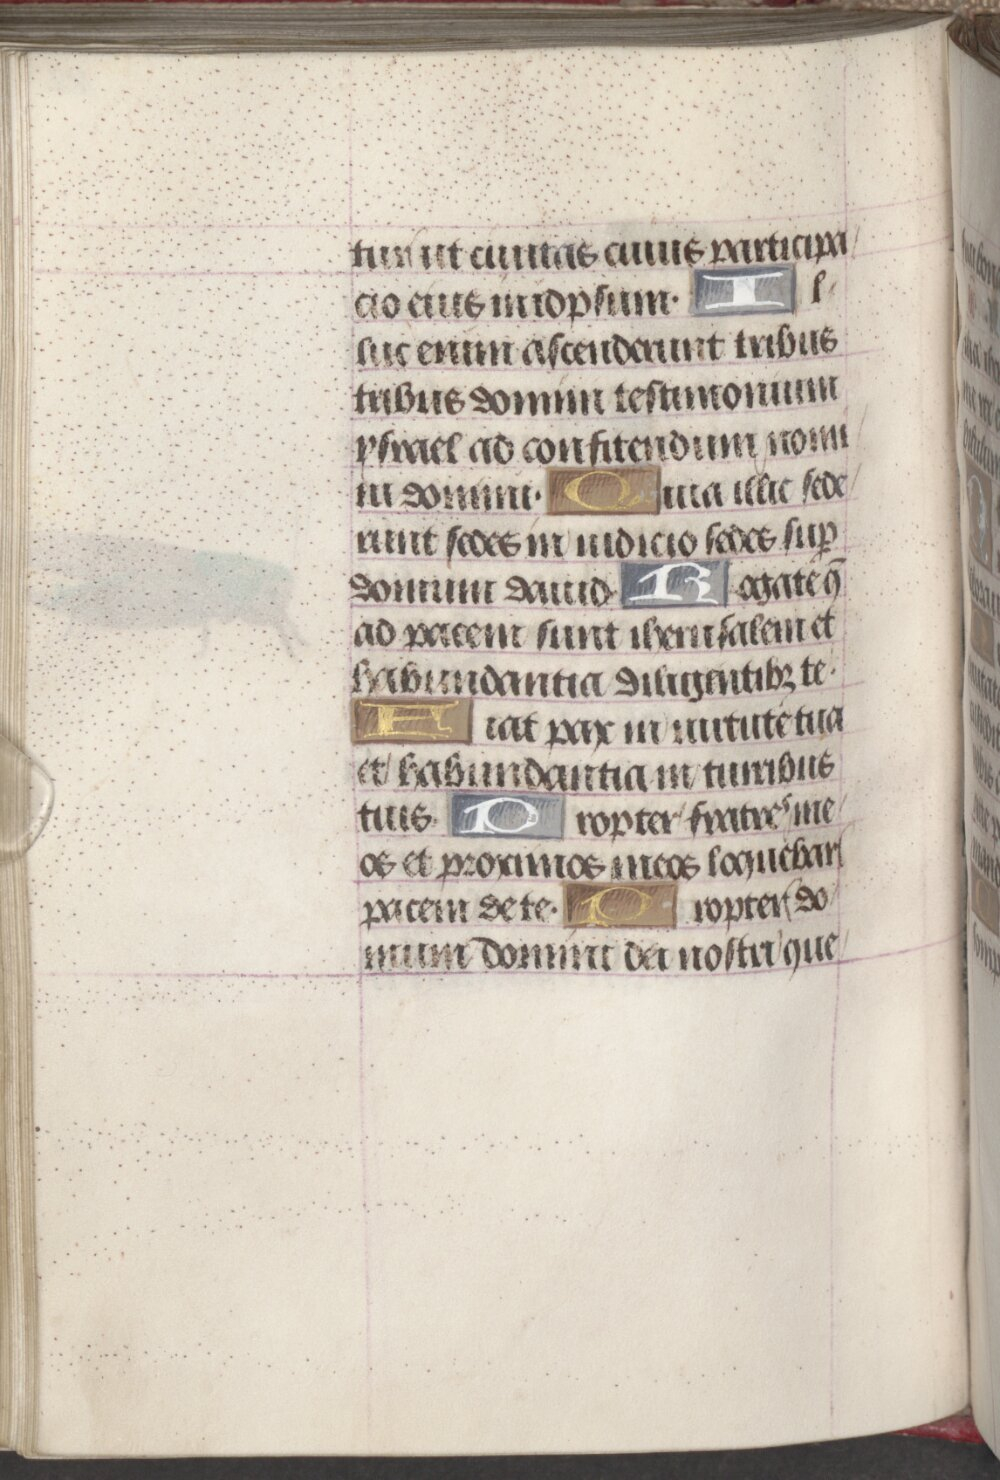 tur ut ciuitas cuius participa
cio eius in idipsum. I l
luc enim ascenderunt tribus
tribus domini testimonium
ysrael ad confitendum nomi
ni domini. Quia illic sede
runt sedes in iudicio sedes sup̄
domum dauid. Rogate q̄
ad pacem sunt iherusalem et
habundantia diligentibꝫ te.
Fiat pax in uirtute tua
et habundantia in turribus
tuis. Propter fratres me
os et proximos meos loquebar
pacem de te. Propter do
mum domini dei nostri que